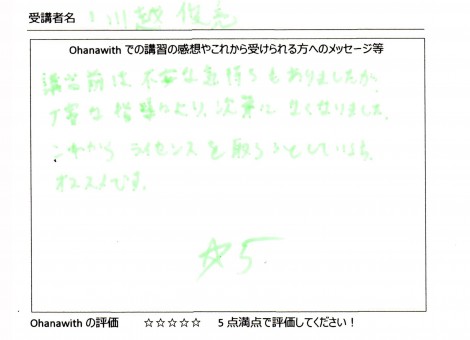 受講者名 川越 俊亮
Ohanawith での講習の感想やこれから受けられる方へのメッセージ等
講習前は不安な気持ちもありましたが、
丁寧な指導により、次第になくなりました。
これから ライセンスを取ろうとしている方、
オススメです。
☆5
Ohanawith の評価 ☆☆☆☆☆ 5点満点で評価してください！